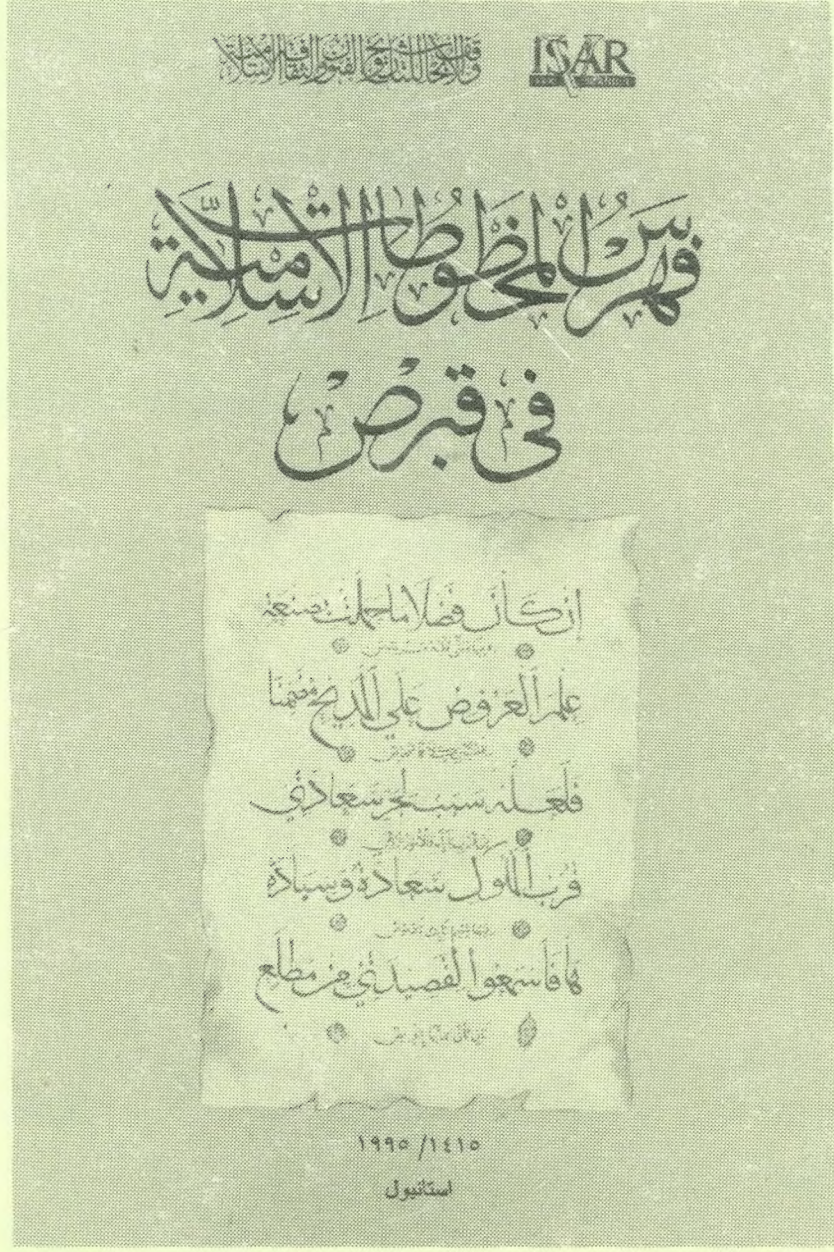 وقف الأبحاث للتاريخ والفنون والثقافة الإسلامية
ISAR
فهرس المخطوطات الإسلامية
في قبرص
إن كان فضلا ما جملت صنعة
علم العروض على المديح مضمنا
فلعله سبب لجر سعادتي
قرب الملوك سعادة وسيادة
ها فاسمعوا لقصيدتي من مطلع
١٤١٥/ ١٩٩٥
استانبول